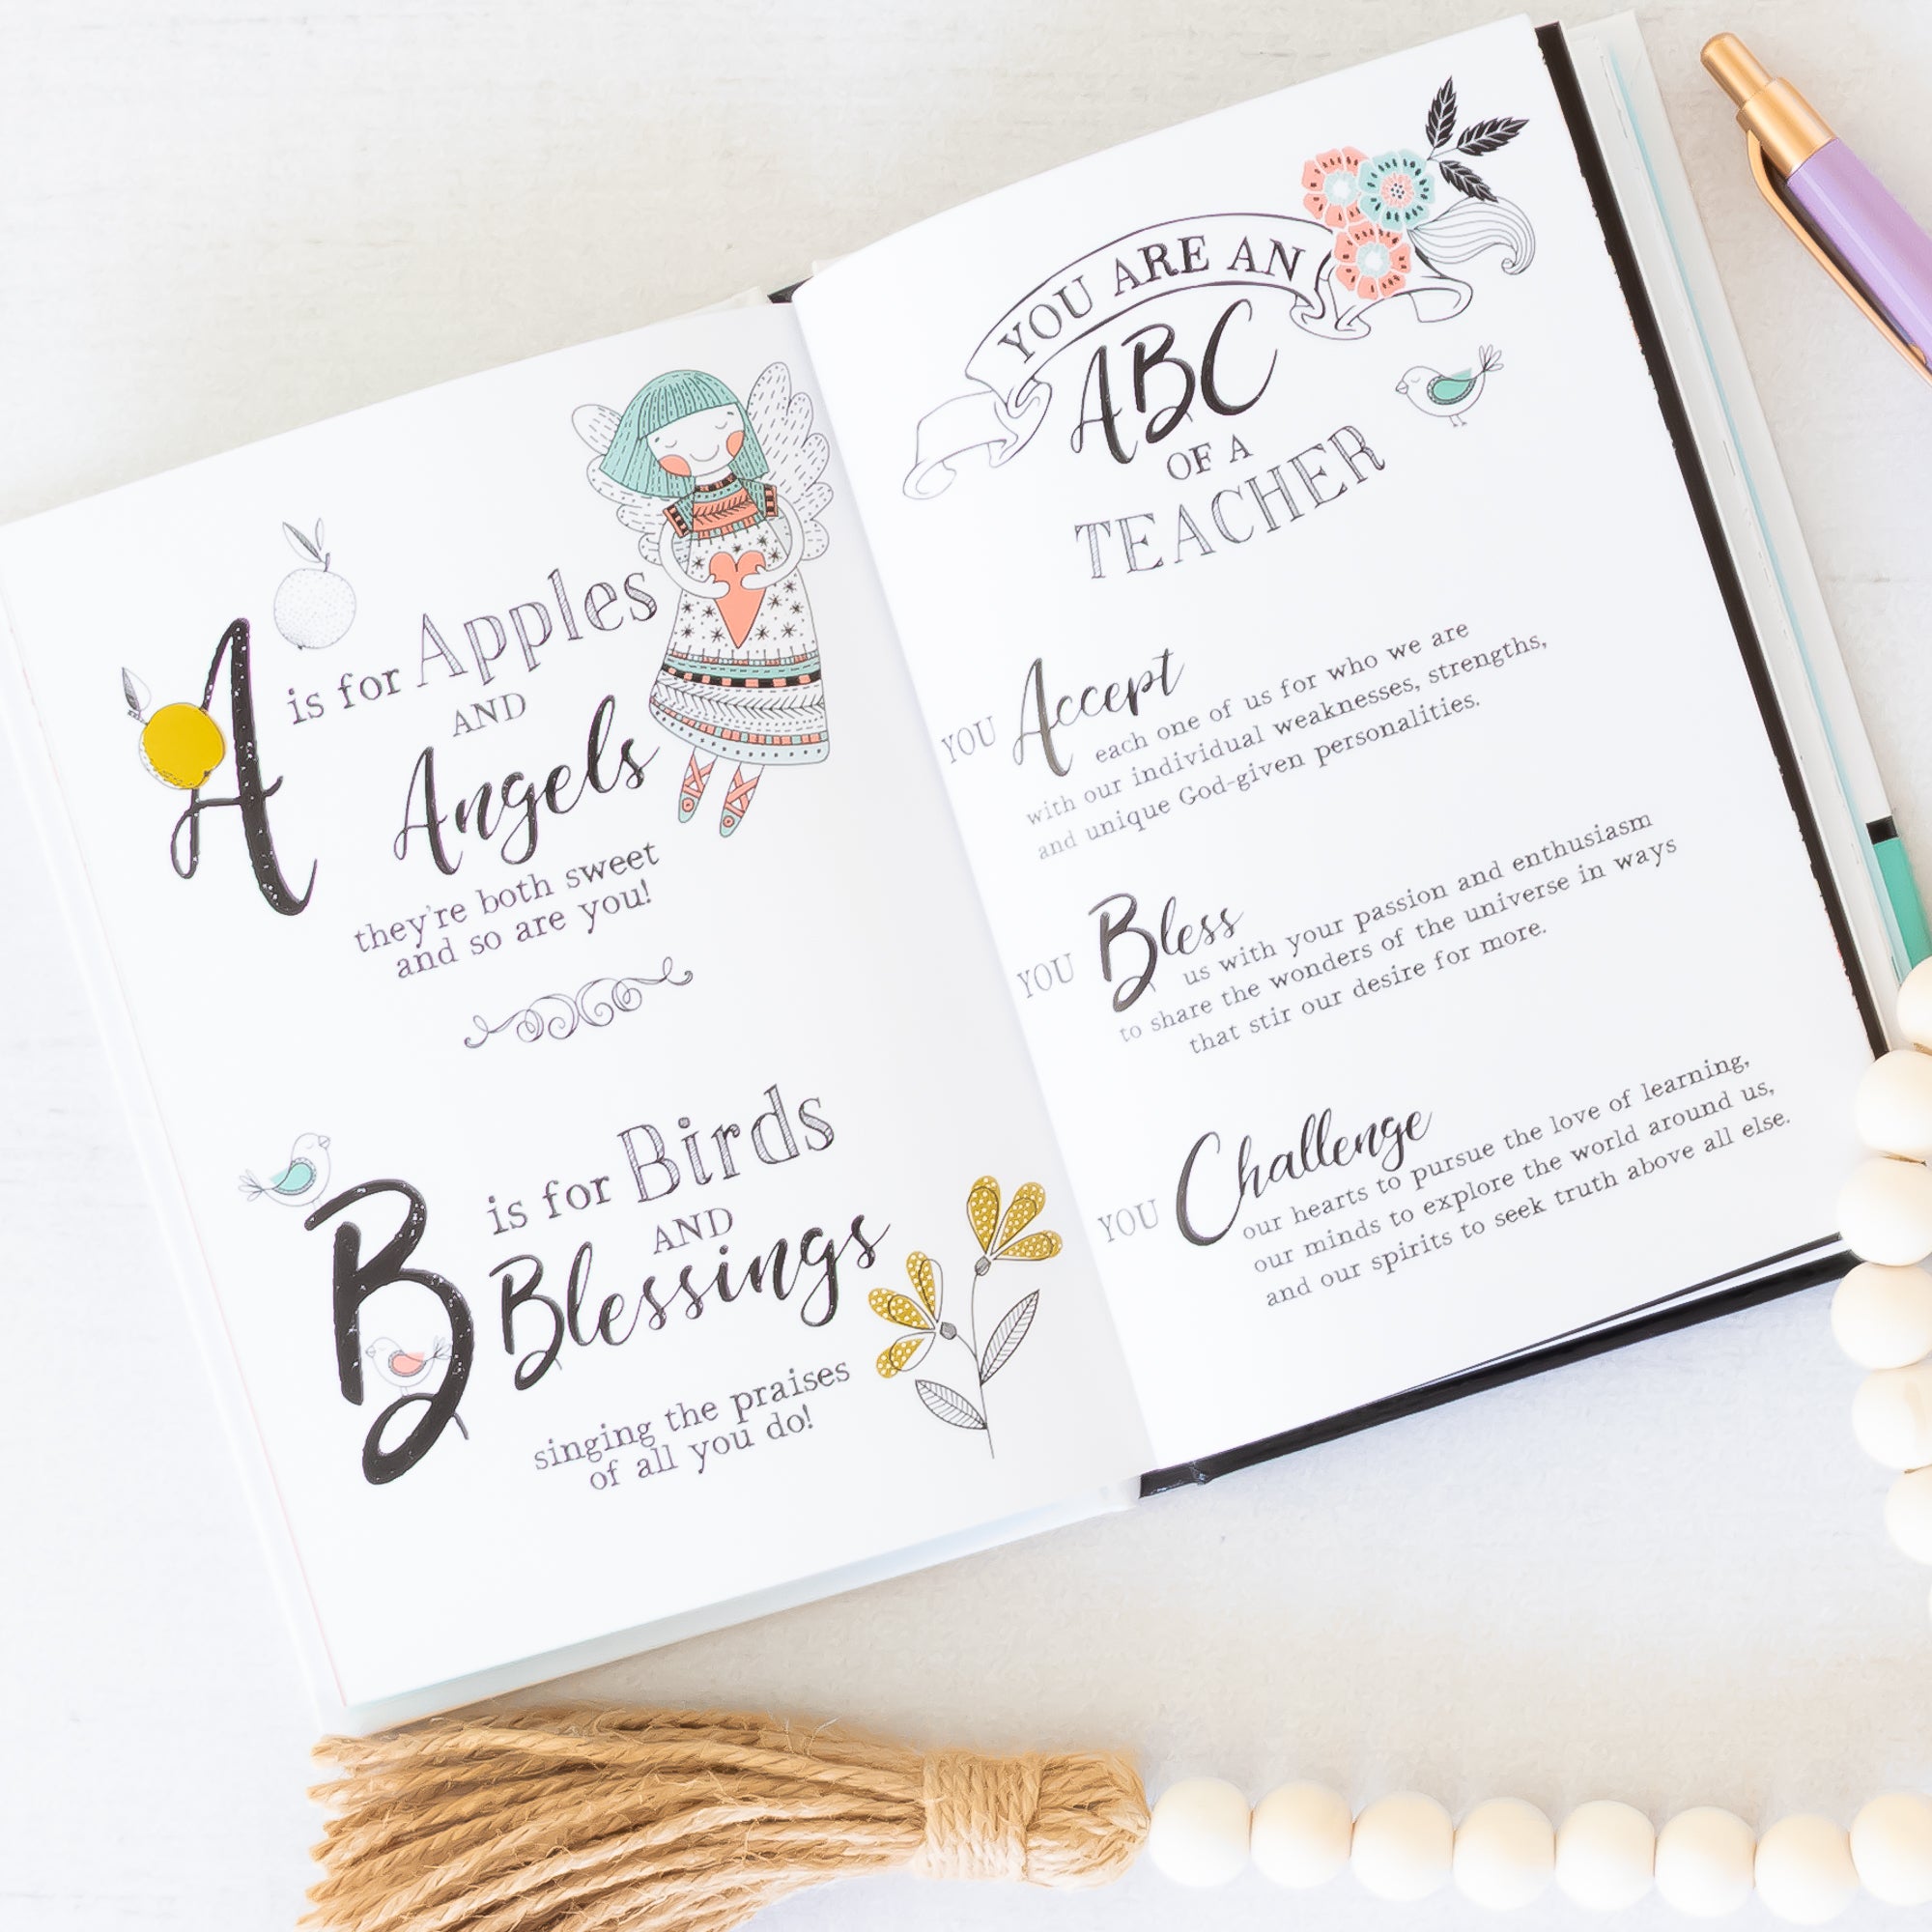 A is for Apples
AND
Angels
they're both sweet
and so are you!
B is for Birds
AND
Blessings
singing the praises
of all you do!
YOU ARE AN
ABC
OF A
TEACHER
YOU Accept
each one of us for who we are
with our individual weaknesses, strengths,
and unique God-given personalities.
YOU Bless
us with your passion and enthusiasm
to share the wonders of the universe in ways
that stir our desire for more.
YOU Challenge
our hearts to pursue the love of learning,
our minds to explore the world around us,
and our spirits to seek truth above all else.